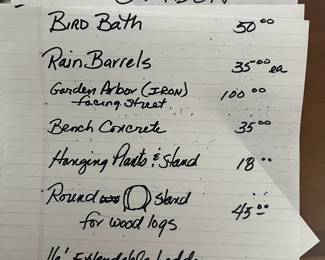 BIRD BATH 50 00
Rain Barrels 35 00 ea
Garden Arbor (IRON) 100 00
facing street
Bench Concrete 35 00
Hanging Plants & Stand 18 00
Round Stand 45 00
for wood logs
16' Extendable Ladder